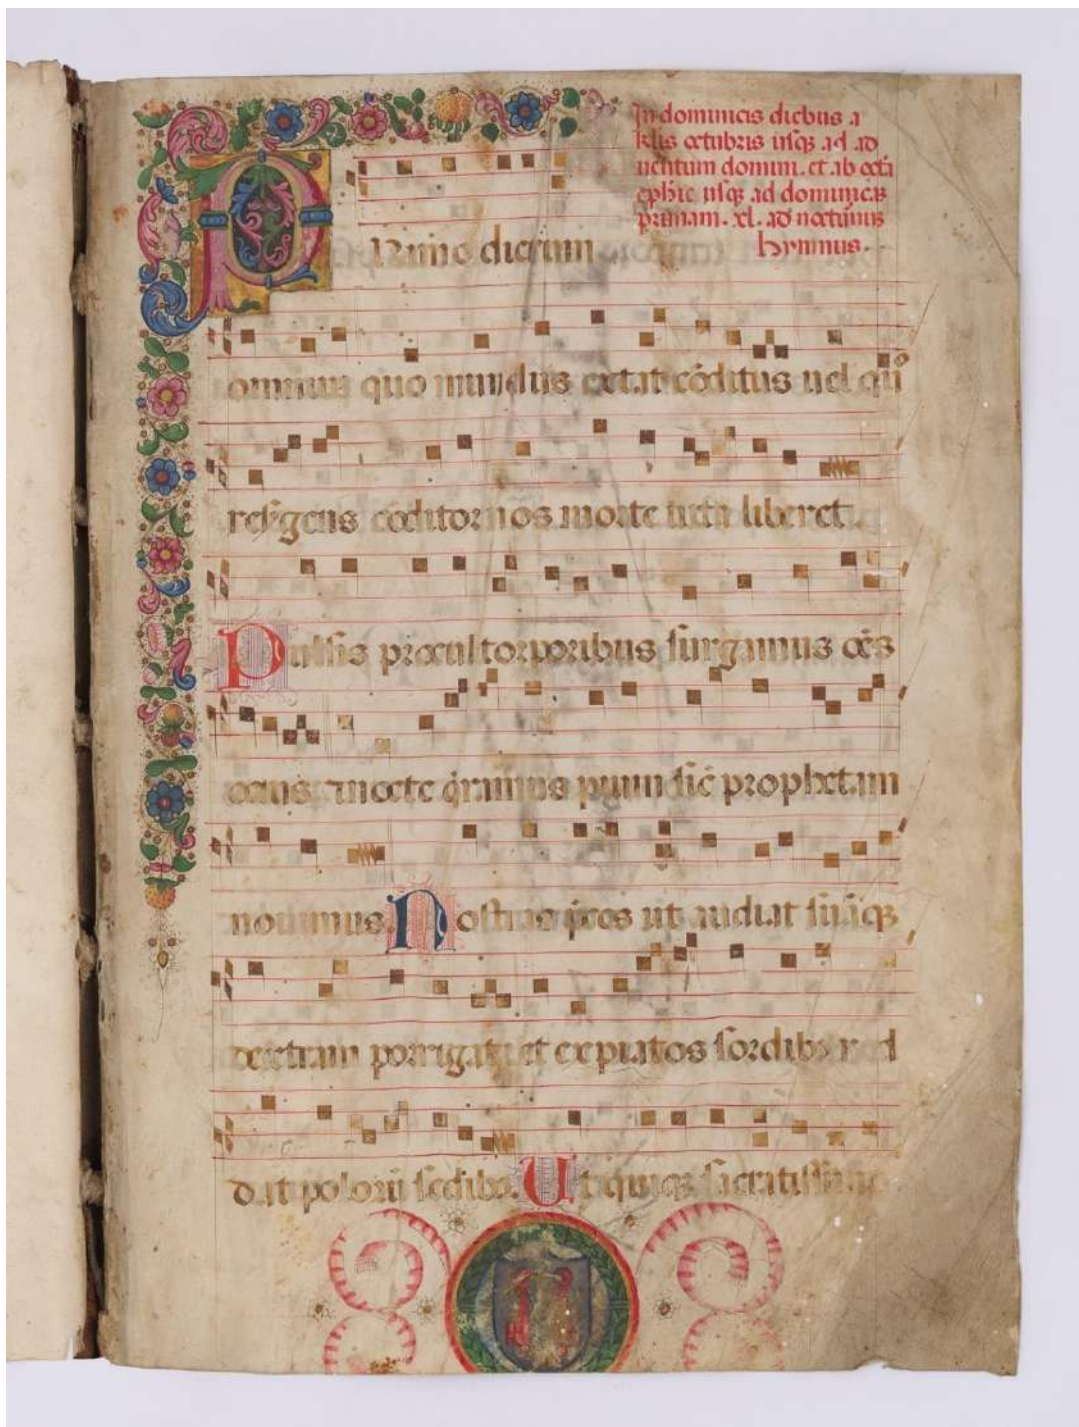 In dominicis diebus a
klis octubris usq; ad ad
uentum domini. et ab octa
ephie usq; ad dominicā
primam. xl. ad nocturnis
hymnus.
PRimo dierum
omnium quo mundus extat cōditus uel quo
resurgens cōditor nos morte uicta liberet.
Pulsis procul torporibus surgamus oēs
ocius et nocte q̄ramus pium sic̄ prophetam
nouimus. Nostras p̄ces ut audiat suāq;
dexteram porrigat et expiatos sordib; red
dat polorū sedib;. Ut quiq; sacratissimo